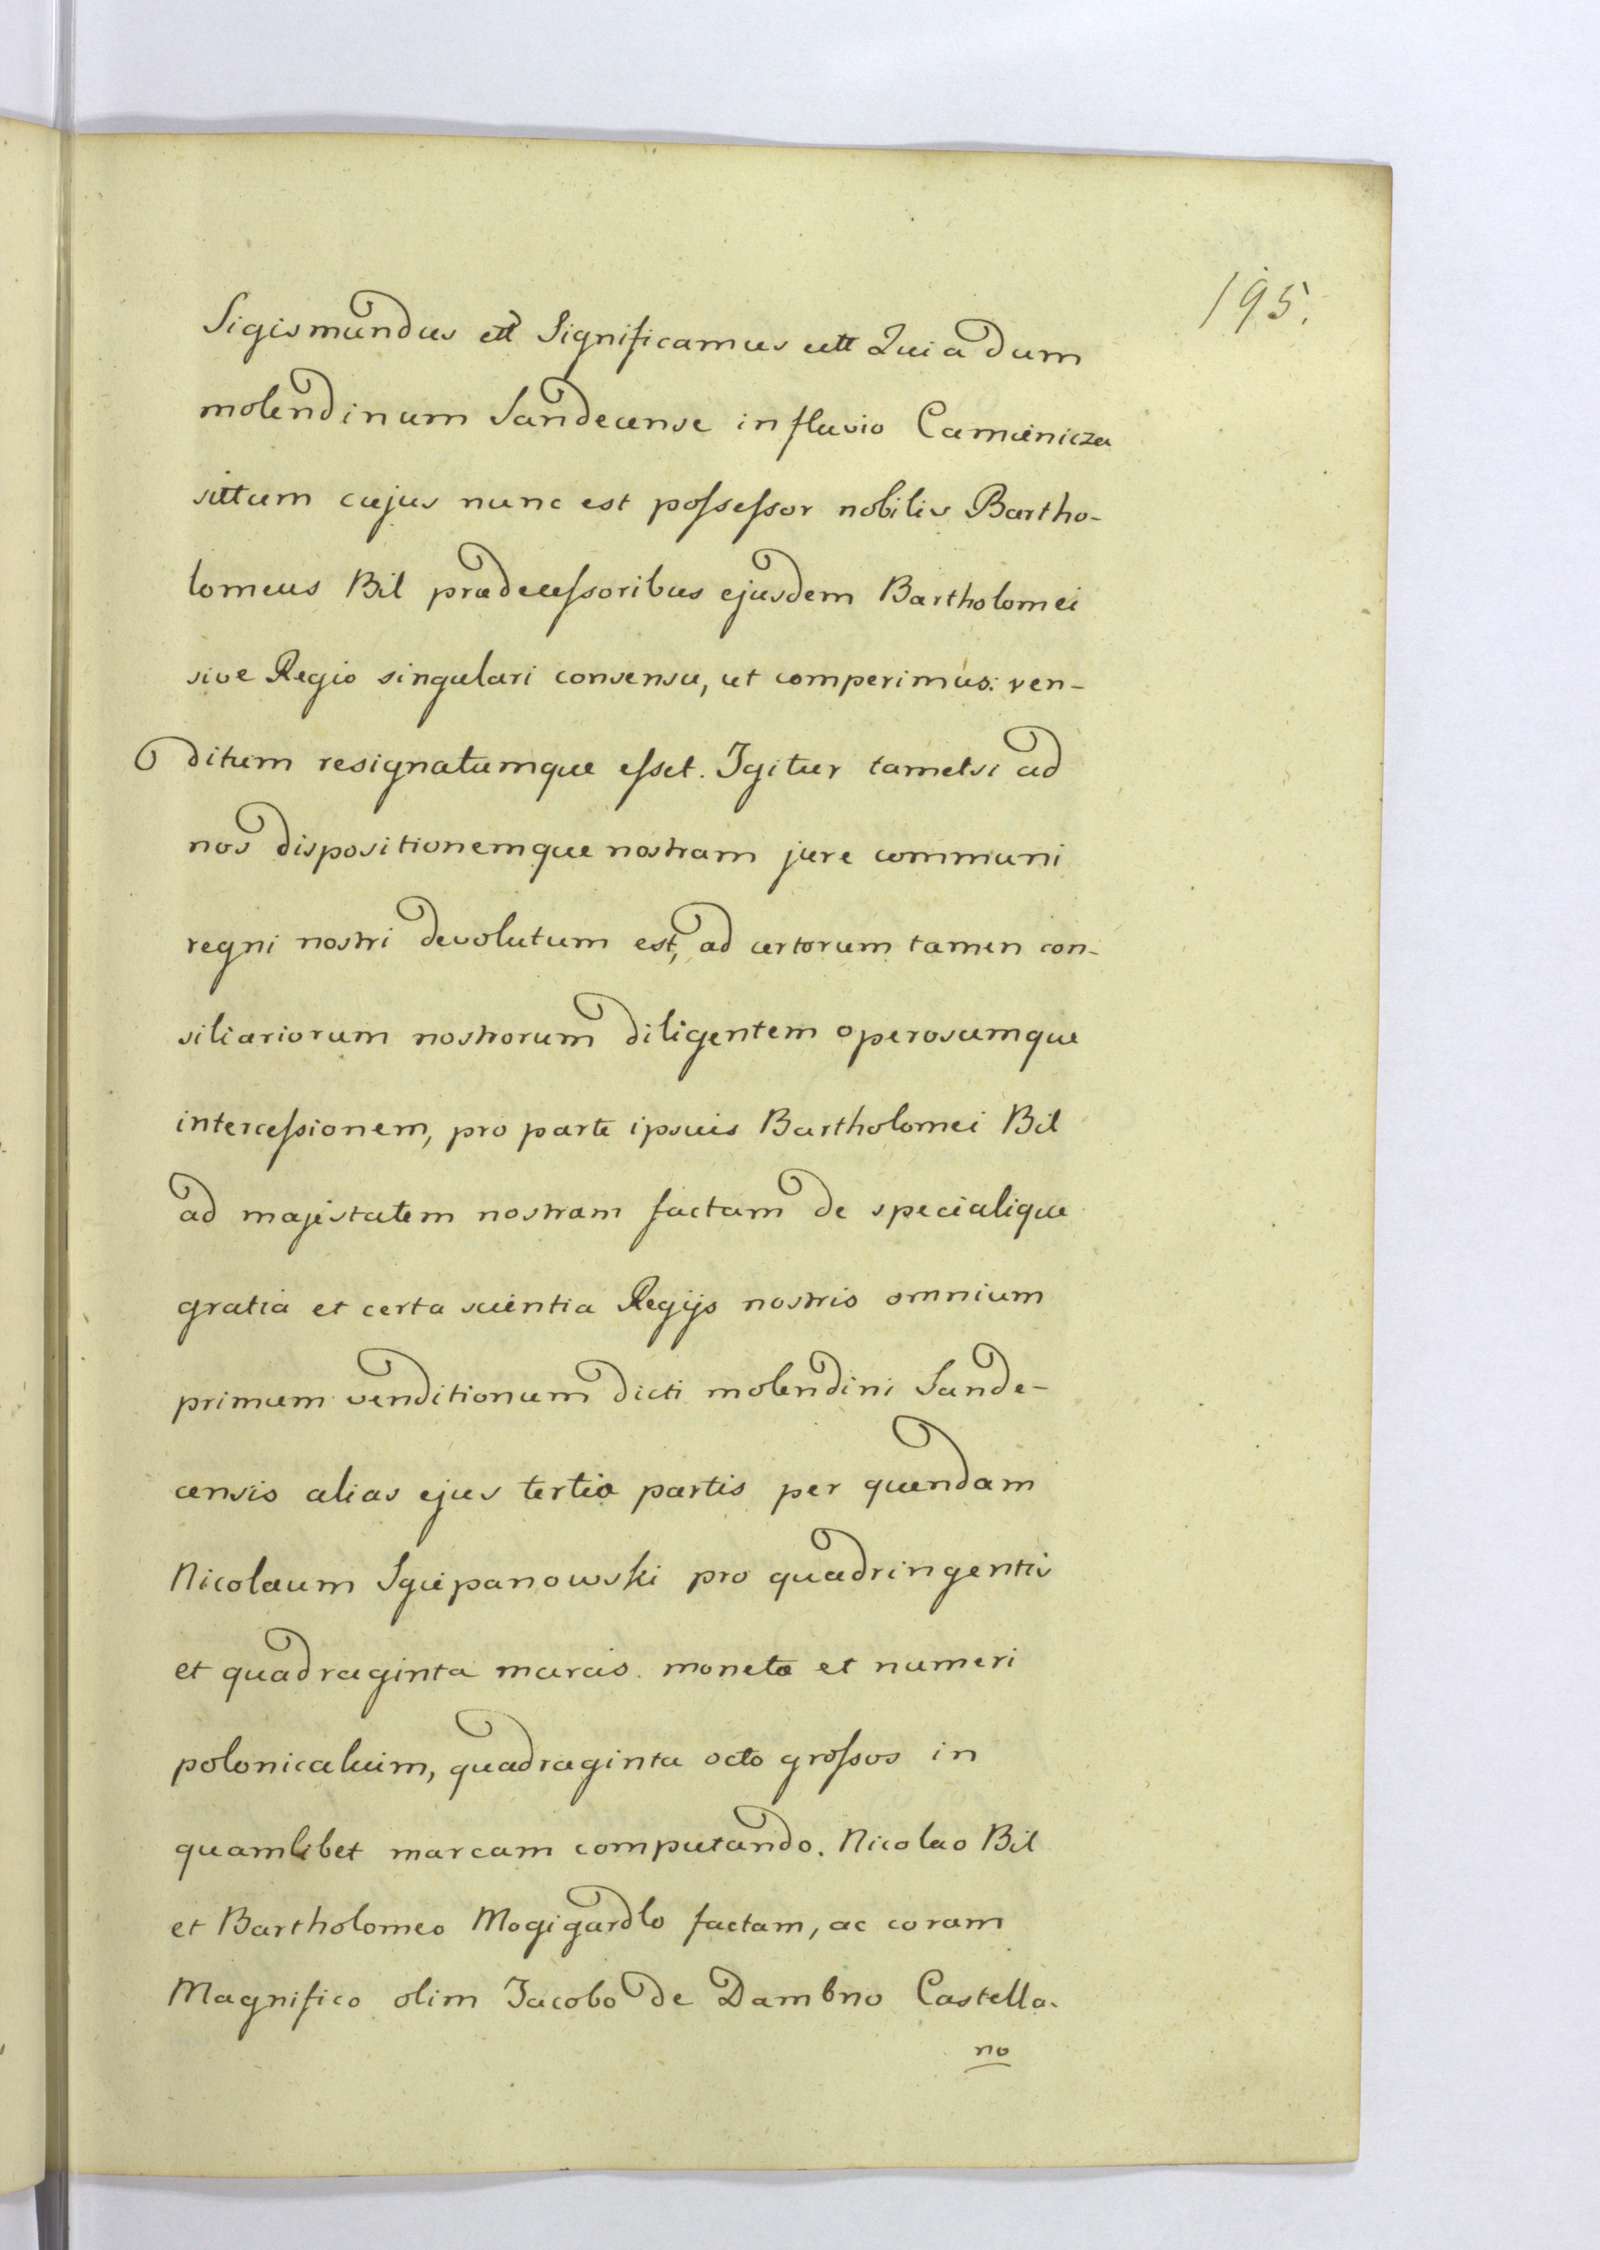 195.
Sigismundus ett Significamus ett Quia dum
molendinum Sandecense in fluvio Camienicza
sittum cujus nunc est possessor nobilis Bartho-
lomeus Bil prædecessoribus ejusdem Bartholomei
sive Regio singulari consensu, ut comperimus: ven-
ditum resignatumque esset. Igitur tametsi ad
nos dispositionemque nostram jure communi
regni nostri devolutum est, ad certorum tamen con-
siliariorum nostrorum diligentem operosumque
intercessionem, pro parte ipsuis Bartholomei Bil
ad majestatem nostram factam de specialique
gratia et certa scientia Regijs nostris omnium
primum venditionum dicti molendini Sande-
censis alias ejus tertiæ partis per quendam
Nicolaum Sgiepanowski pro quadringentis
et quadraginta marcis. monetæ et numeri
polonicaluim, quadraginta octo grossos in
quamlibet marcam computando. Nicolao Bil
et Bartholomeo Mogigardlo factam, ac coram
Magnifico olim Jacobo de Dambno Castella-
no